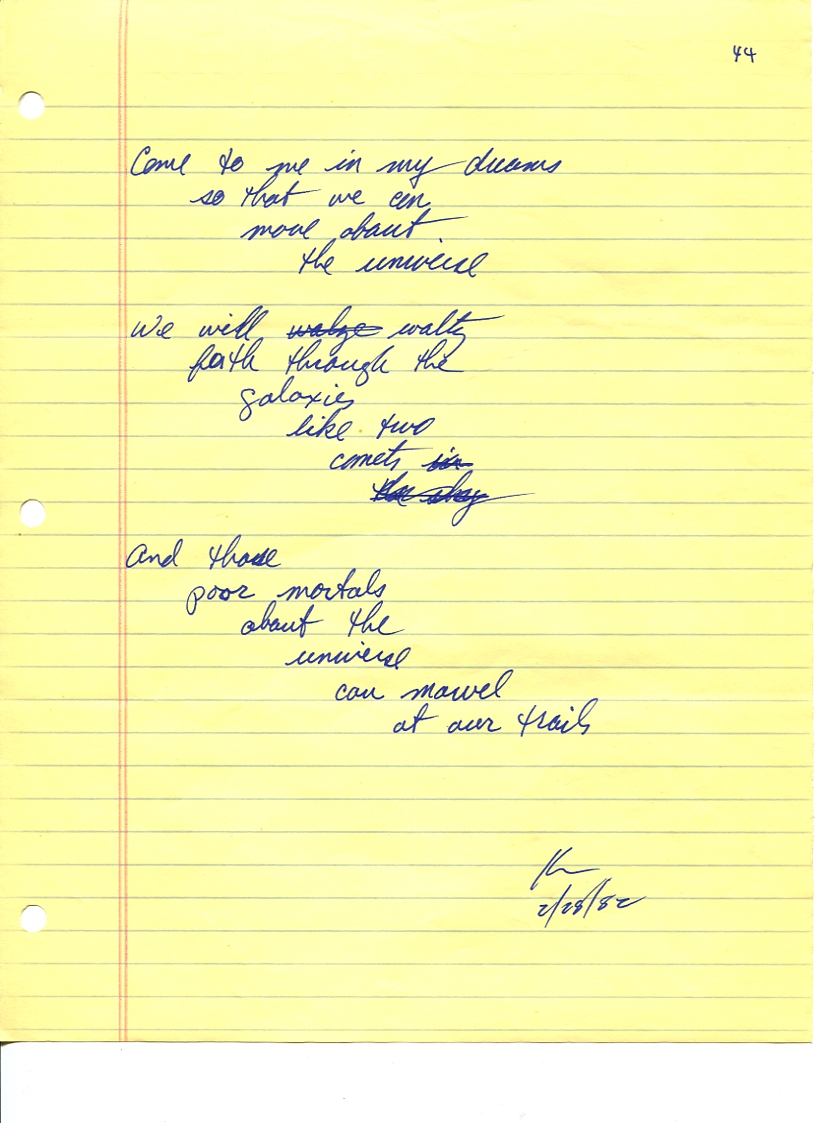 44
Come to me in my dreams
so that we can
move about
the universe
We will walze waltz
forth through the
galaxies
like two
comets in
the sky
And those
poor mortals
about the
universe
can marvel
at our trails
2/28/82